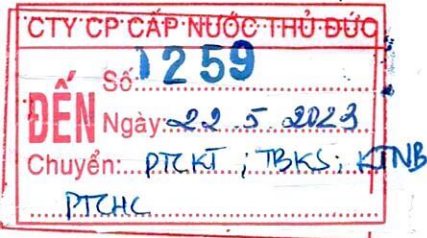 CTY CP CẤP NƯỚC THỦ ĐỨC
ĐẾN
Số: 1259
Ngày: 22.5.2023
Chuyển: PTCKT; TBKS; KTNB
PTCHC